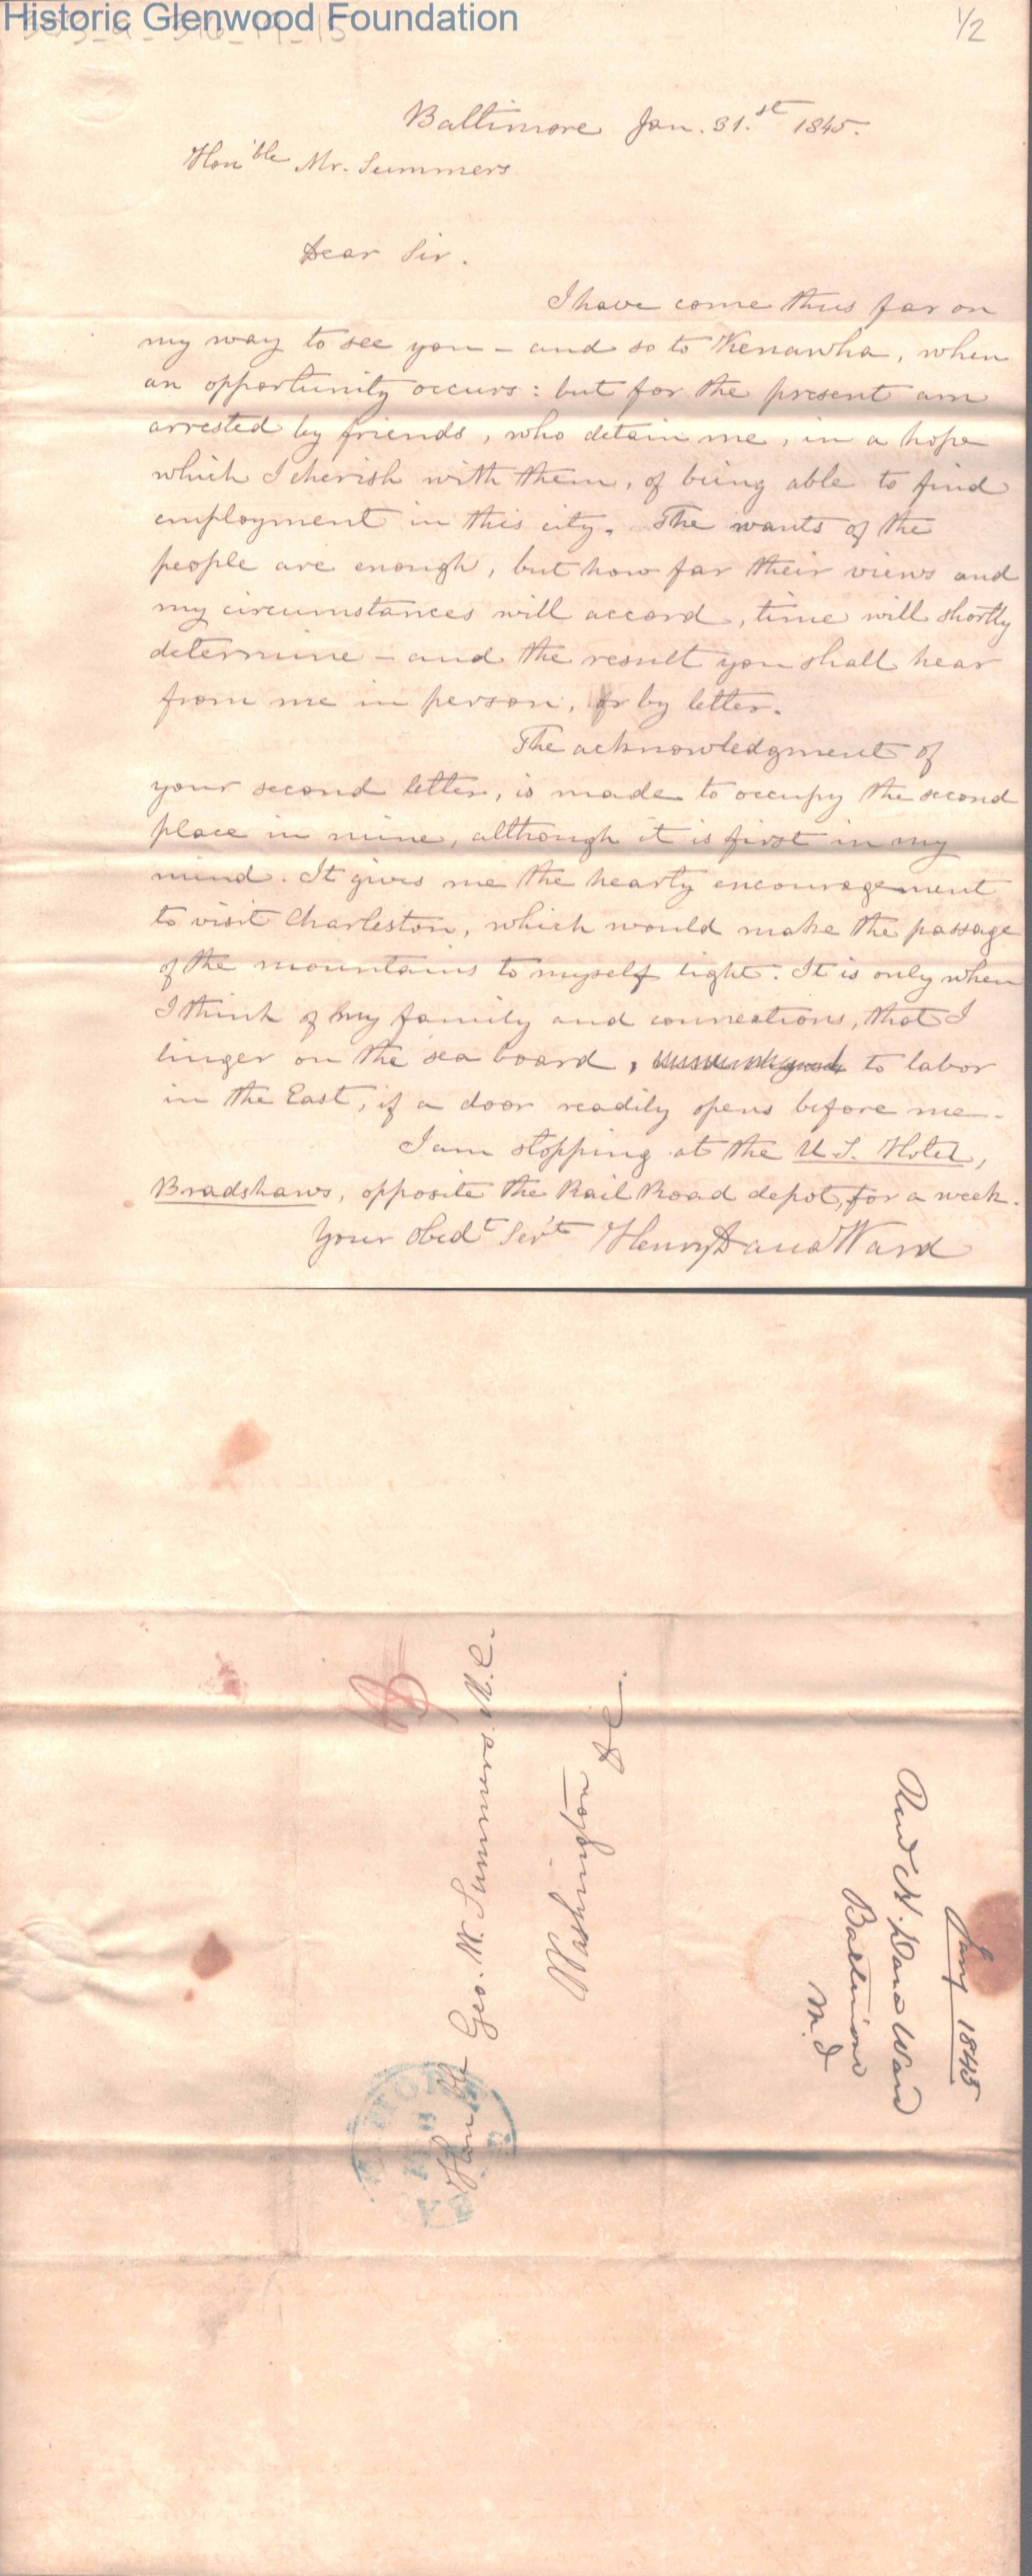 Historic Glenwood Foundation
1/2
Baltimore Jan. 31.st 1845.
Hon'ble Mr. Summers
Dear Sir.
I have come thus far on
my way to see you – and so to Kenawha, when
an opportunity occurs: but for the present am
arrested by friends, who detain me, in a hope
which I cherish with them, of being able to find
employment in this city. The wants of the
people are enough, but how far their views and
my circumstances will accord, time will shortly
determine – and the result you shall hear
from me in person, or by letter.
The acknowledgment of
your second letter, is made to occupy the second
place in mine, although it is first in my
mind. It gives me the hearty encouragement
to visit Charleston, which would make the passage
of the mountains to myself light. It is only when
I think of my family and connections, that I
linger on the sea board, to labor
in the East, if a door readily opens before me –
I am stopping at the U.S. Hotel,
Bradshaws, opposite the Rail Road depot, for a week.
Your obedt Servt Henry Dana Ward
Hon'ble Geo. W. Summers M.C.
Washington
D.C.
Jany 1845
Revd H. Dana Ward
Baltimore
M.d